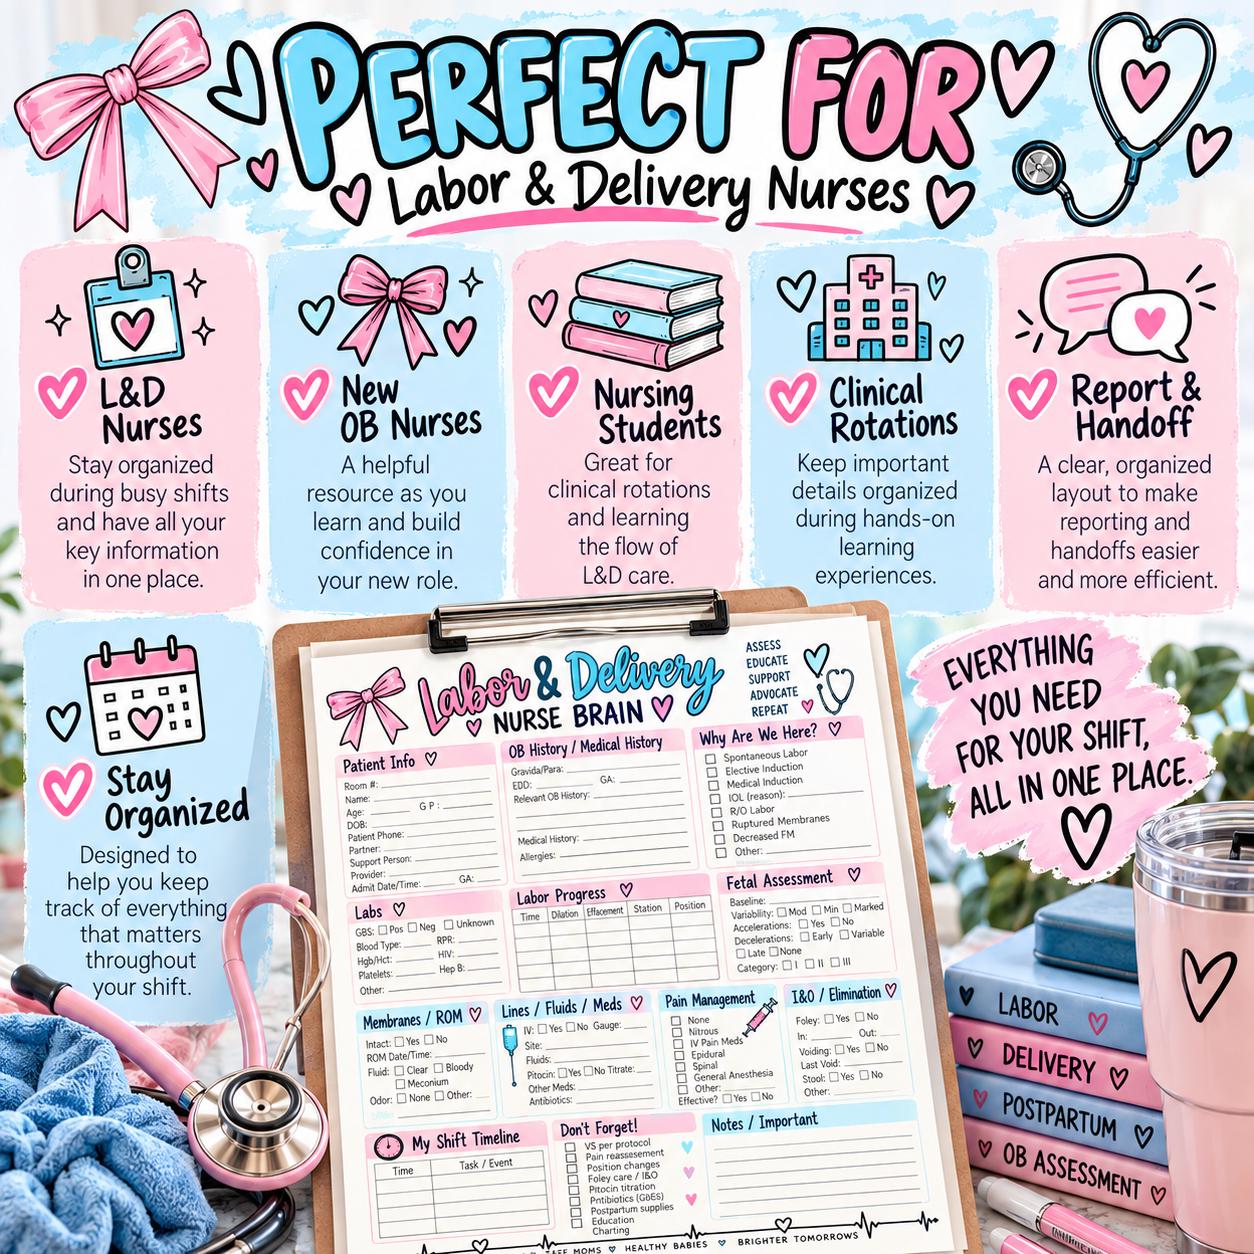 PERFECT FOR
Labor & Delivery Nurses
L&D
Nurses
Stay organized
during busy shifts
and have all your
key information
in one place.
New
OB Nurses
A helpful
resource as you
learn and build
confidence in
your new role.
Nursing
Students
Great for
clinical rotations
and learning
the flow of
L&D care.
Clinical
Rotations
Keep important
details organized
during hands-on
learning
experiences.
Report &
Handoff
A clear, organized
layout to make
reporting and
handoffs easier
and more efficient.
Stay
Organized
Designed to
help you keep
track of everything
that matters
throughout
your shift.
EVERYTHING
YOU NEED
FOR YOUR SHIFT,
ALL IN ONE PLACE.
Labor & Delivery
NURSE BRAIN
ASSESS
EDUCATE
SUPPORT
ADVOCATE
REPEAT
Patient Info
Room #:
Name:
Age: G P :
DOB:
Patient Phone:
Partner:
Support Person:
Provider:
Admit Date/Time: GA:
OB History / Medical History
Gravida/Para:
EDD: GA:
Relevant OB History:
Medical History:
Allergies:
Why Are We Here?
Spontaneous Labor
Elective Induction
Medical Induction
IOL (reason):
R/O Labor
Ruptured Membranes
Decreased FM
Other:
Labs
GBS: Pos Neg Unknown
Blood Type: RPR:
Hgb/Hct: HIV:
Platelets: Hep B:
Other:
Labor Progress
Time Dilation Effacement Station Position
Fetal Assessment
Baseline:
Variability: Mod Min Marked
Accelerations: Yes No
Decelerations: Early Variable
Late None
Category: I II III
Membranes / ROM
Intact: Yes No
ROM Date/Time:
Fluid: Clear Bloody
Meconium
Odor: None Other:
Lines / Fluids / Meds
IV: Yes No Gauge:
Site:
Fluids:
Pitocin: Yes No Titrate:
Other Meds:
Antibiotics:
Pain Management
None
Nitrous
IV Pain Meds
Epidural
Spinal
General Anesthesia
Other:
Effective? Yes No
I&O / Elimination
Foley: Yes No
In: Out:
Voiding: Yes No
Last Void:
Stool: Yes No
Other:
My Shift Timeline
Time Task / Event
Don't Forget!
VS per protocol
Pain reassesement
Position changes
Foley care / I&O
Pitocin titration
Pntibiotics (GbES)
Postpartum supplies
Education
Charting
Notes / Important
MOMS HEALTHY BABIES BRIGHTER TOMORROWS
LABOR
DELIVERY
POSTPARTUM
OB ASSESSMENT